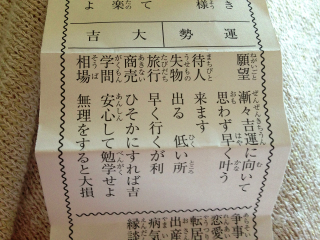 き
様
て
楽
よ
運勢
大吉
願望 漸々吉運に向いて
思わず早く叶う
待人 来ます
失物 出る 低い所
旅行 早く行くが利
商売 ひそかにすれば吉
学問 安心して勉学せよ
相場 無理をすると大損
争事
恋愛
転居
出産
病気
縁談